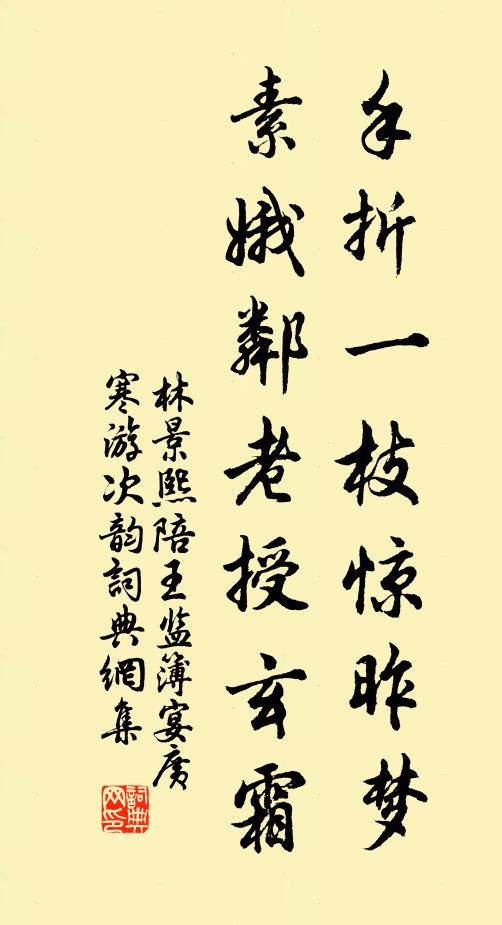 手折一枝惊昨梦
素娥鄰老授玄霜
林景熙陪王监簿宴广
寒游次韵词典網集
詞典网印